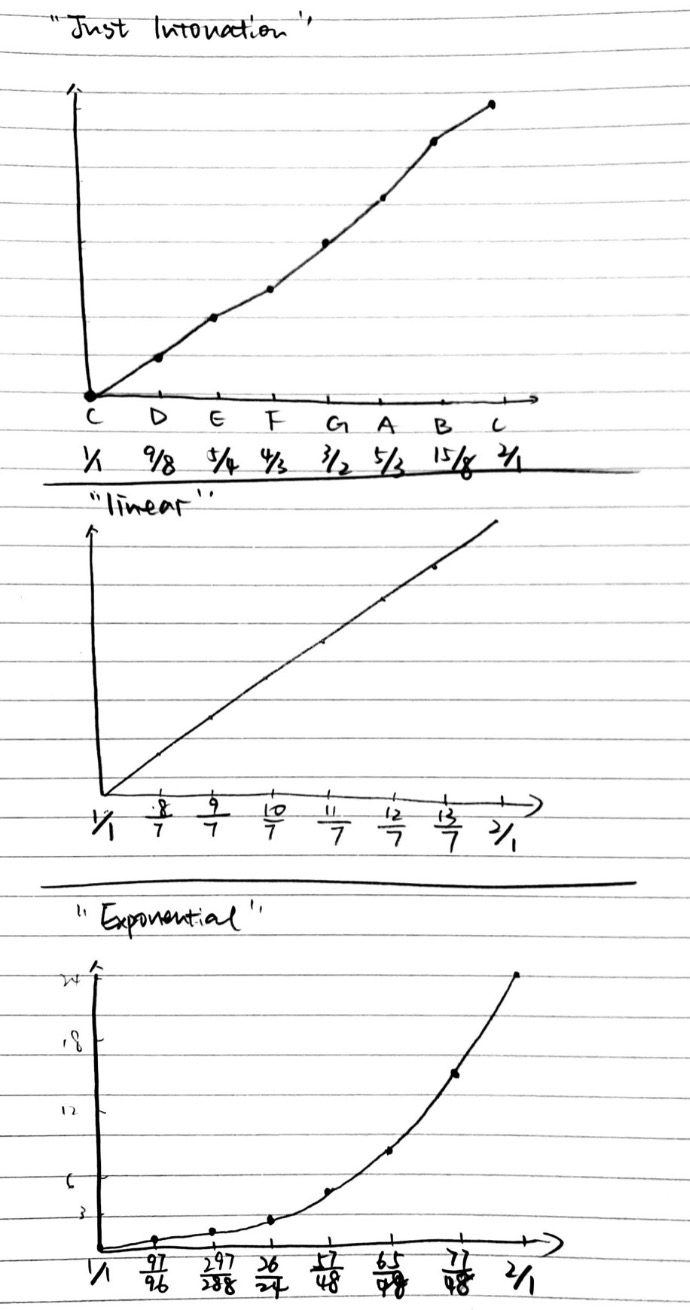 "Just Intonation"
C D E F G A B C
1/1 9/8 5/4 4/3 3/2 5/3 15/8 2/1
"linear"
1/1 8/7 9/7 10/7 11/7 12/7 13/7 2/1
"Exponential"
24
18
12
6
3
1/1 97/96 297/288 26/24 57/48 65/48 77/48 2/1